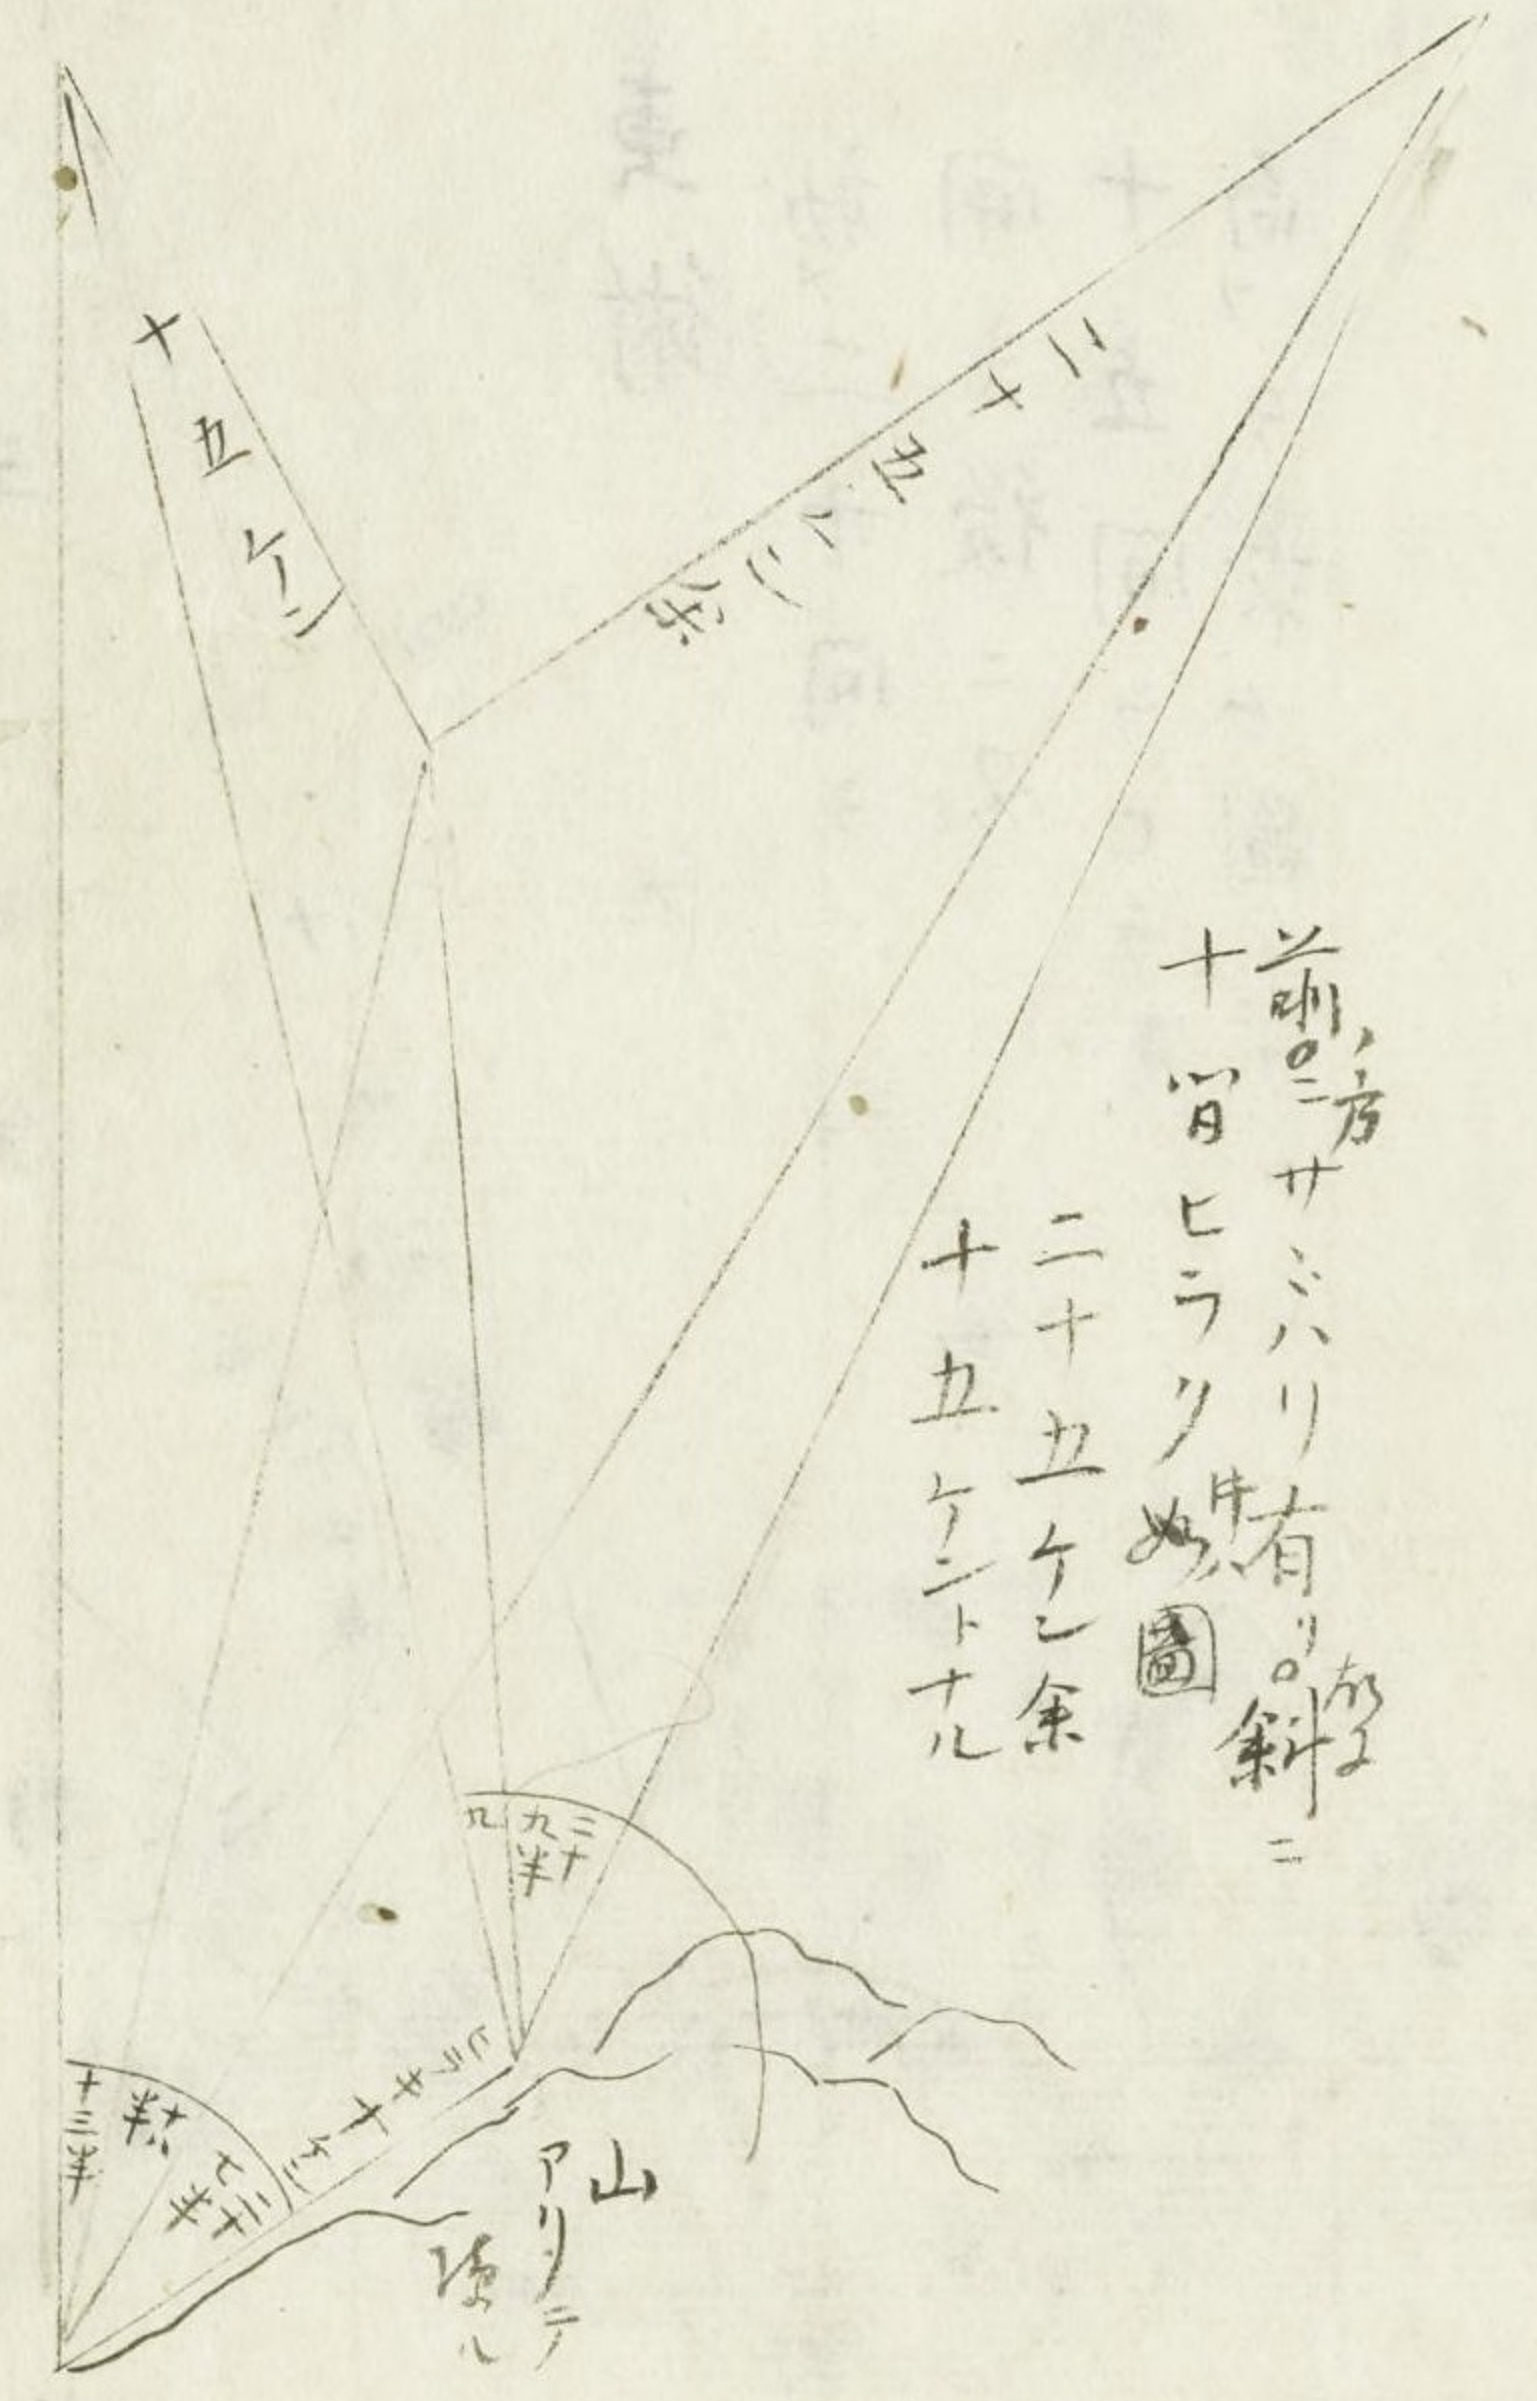 前ノ方ニサハリ有リ斜ニ
十間ヒラク如圖
二十五ケン余
十五ケントナル
二十五ケン余
十五ケン
九
九半
二十
ヒラキ十ケン
十三半
十六半
二十七半
山
アリテ
障ル